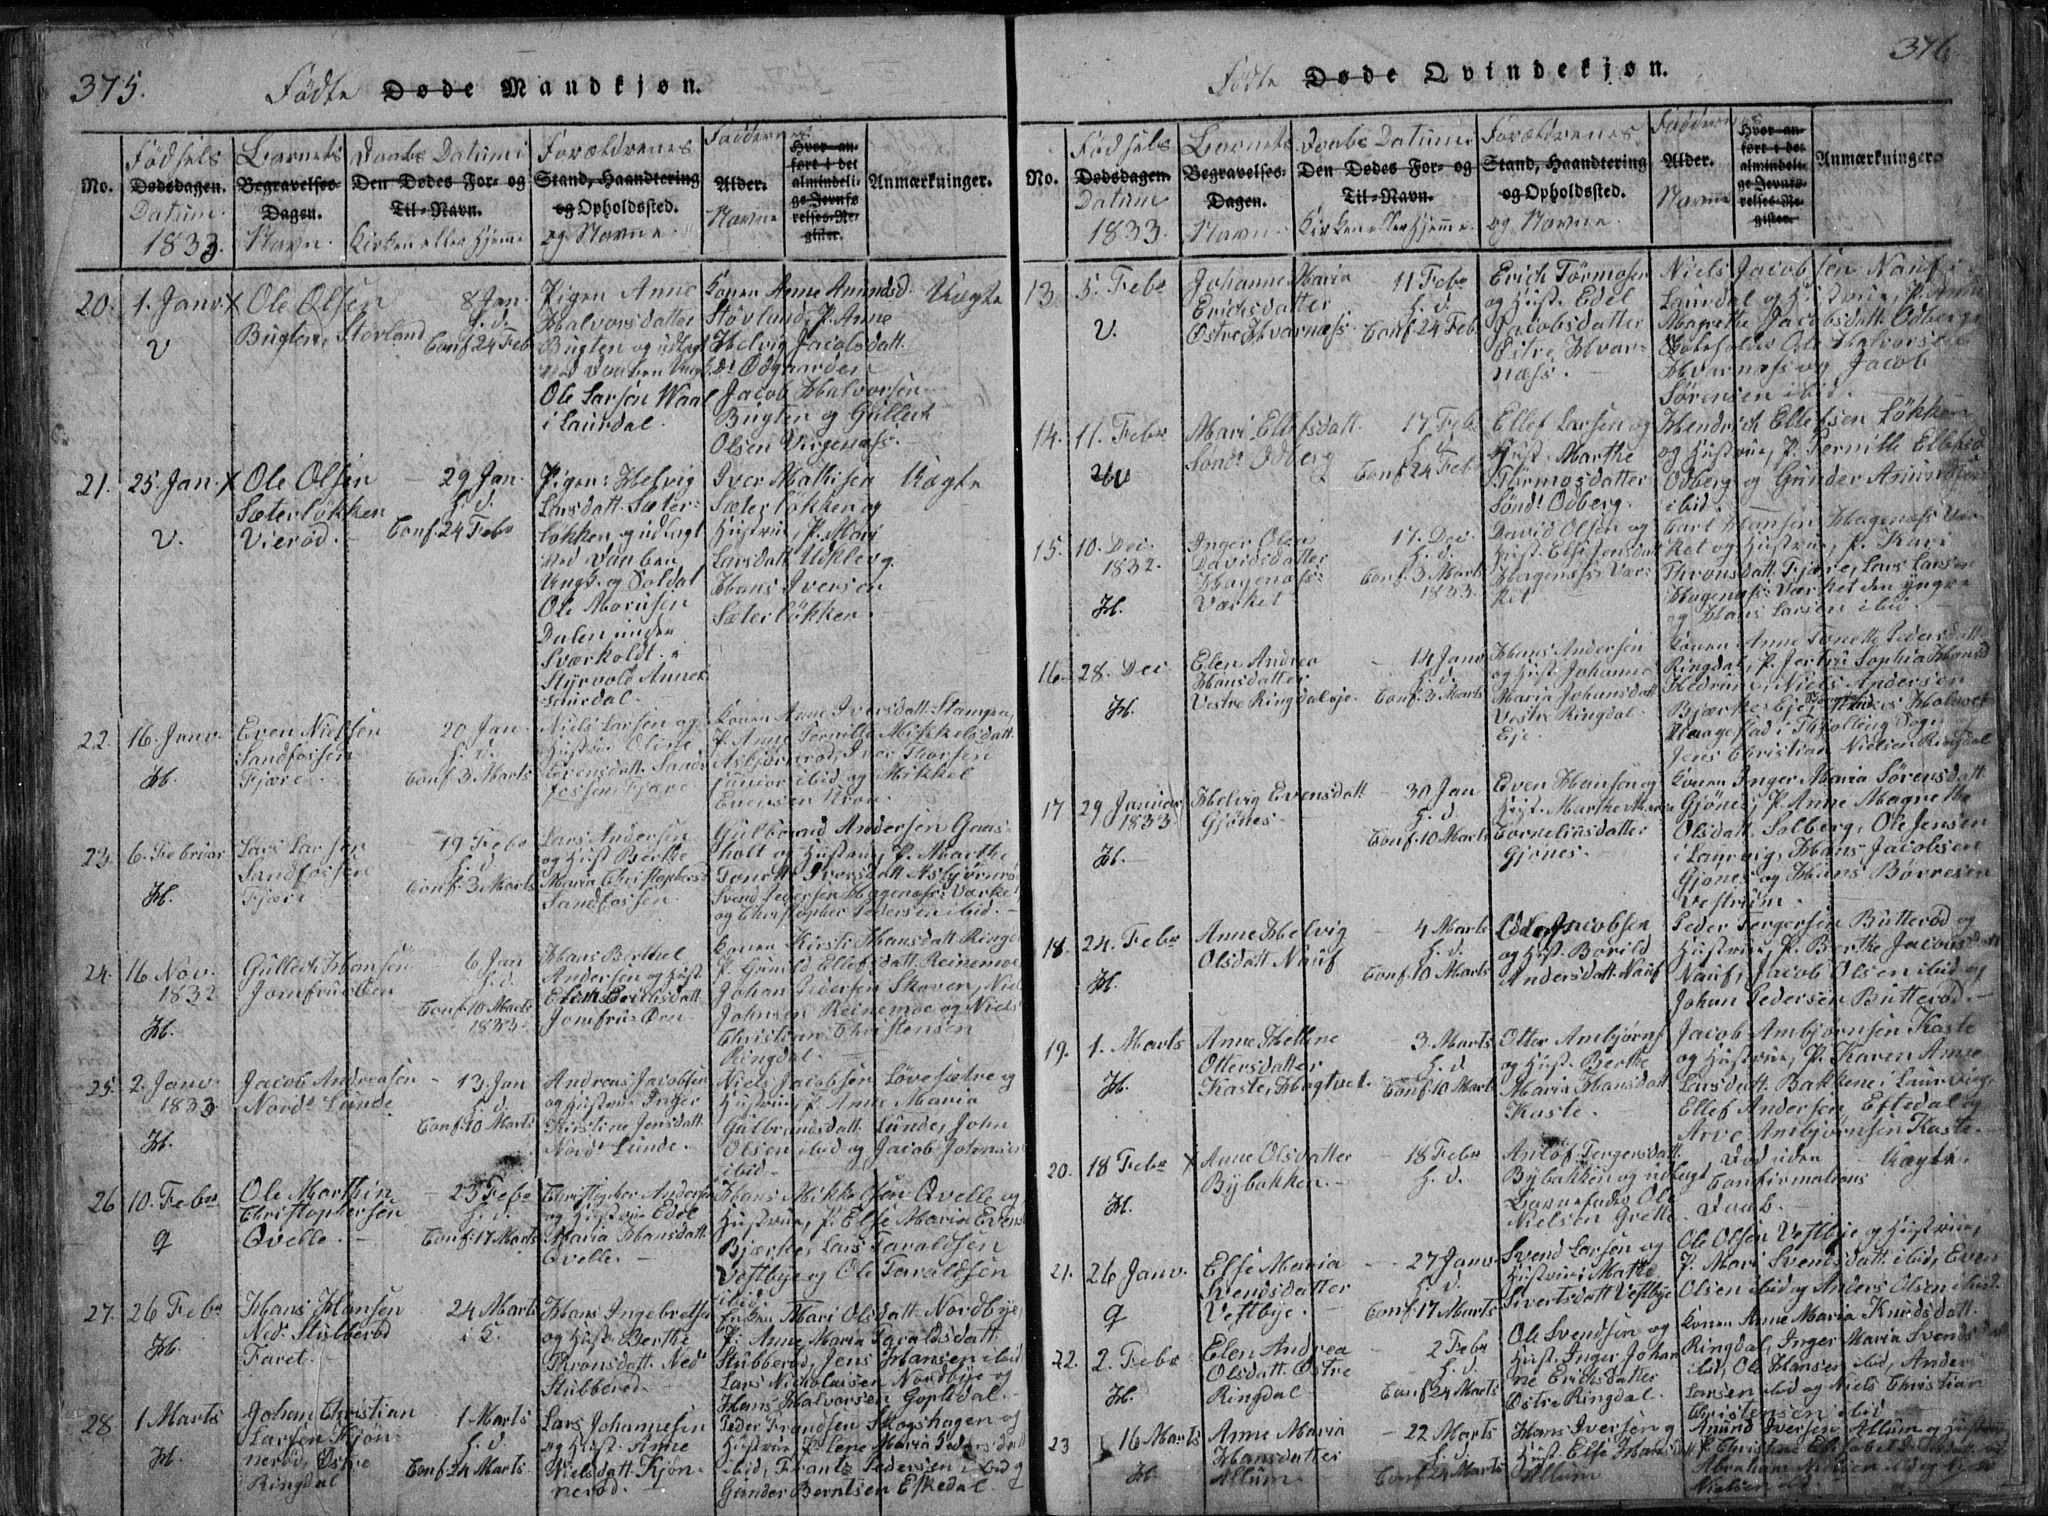 375.
Födte Døde Mandkjøn.
No.
Födsels
Dødsdagen.
Datum.
1833
Barnets
Begravelses-
Dagen.
Navn.
Daabs Datum i
Den Dødes For- og
Til-Navn.
Kirken eller Hjemme
Forældrenes
Stand, Haandtering
og Opholdssted.
og Navne.
Faddernes
Alder.
Navne
Hvor an-
ført i det
almindeli-
ge Jevnfø-
relses-Re-
gister.
Anmærkninger.
20. 1. Janv. X
V
Ole Olsen
Bugten, Stövland
8 Jan.
h. d.
Conf. 24 Feb
Pigen Anne
Halvorsdatter
Bugten og udlagt
Ole Larsen Waal
i Laurdal.
Konen Anne Amundsd.
Stövland, P. Anne
Helvig Jacobsdatt.
Jacob Halvorsen
Bugten og Gullich
Olsen Virgenæss.
Uægte
21. 25. Jan. X
V.
Ole Olsen
Sæterlökken
Vieröd.
29 Jan.
h. d.
Conf. 24 Febr
Pigen Helvig
Larsdatt. Sæter-
lökken og udlagt
ved Daaben
Ungk. og Soldat
Ole
Dalen under
Sværkoldt.
Styrvold Annex
Laurdal.
Iver Mathisen
Sæterlökken og
Hustrue, P. Mari
Larsdatt. Uikleiv
Hans Iversen
Sæterlökken.
Uægte
22. 16. Janv.
H.
Even Nielsen
Sandfossen
Fjære.
20 Jan.
h. d.
Conf. 3 Marts
Niels Larsen og
Hustrue Oline
Evensdatt. Sand-
fossen Fjære
Konen Anne Iversdatt. Stampen,
P. Anne Pernille Mikkelsdatt.
Asbjörnröd, Iver Thorsen
junior ibid og Mikkel
Evensen
23. 6. Februar
H.
Lars Larsen
Sandfossen
Fjære
19 Febr
h. d.
Conf. 3 Marts
Lars Andersen
og Hust. Berthe
Maria Christophersd.
Sandfossen.
Gulbrand Andersen Gaas-
holt og Hustrue, P. Marthe
Tonette Iversdatt. Asbjörnröd
Svend Pedersen Hagenæss: Værket
og Christopher Pedersen ibid.
24. 16 Nov.
1832
H.
Gullich Hansen
Jomfrueöen
6 Jan
h. d.
Conf. 10 Marts
1833.
Hans Berthel
Andersen og Hust.
Erichsdatt.
Jomfrue-Öen.
Konen Kirsti Hansdatt. Ringd.
P. Gunild Ellefsdatt. Reinemoe
Johan Pedersen Skoven, Niels
Johnsen Reinemoe og Niels
Christian Christensen
Ringdal.
25. 2. Janv.
1833
H.
Jacob Andreasen
Nord: Lunde
13. Jan
h. d.
Conf. 10 Marts
Andreas Jacobsen
og Hustrue Inger
Kirstine Jensdatt.
Nord: Lunde.
Niels Jacobsen Lövesætre og
Hustrue, P. Anne Maria
Gulbrandsdatt. Lunde, John
Olsen ibid og Jacob Johnsen
ibid.
26 10. Febr
q
Ole Marthin
Christophersen
Qvelle.
23 Febr
h. d.
Conf. 17 Marts
Christopher Andersen
og Hustrue Edel
Maria Hansdatt.
Qvelle.
Hans Mikkelsen Qvelle og
Hustrue, P. Else Maria Evens
Bjærke, Lars Taraldsen
Vestbye og Ole Taraldsen
ibid.
27. 26 Febr
H.
Hans Hansen
Ned: Stubberöd
Faret.
24 Marts
i K.
Hans Ingebretsen
og Hust. Berthe
Thronsdatt. Ned:
Stubberöd.
Enken Mari Olsdatt. Nordbye,
P. Anne Maria Taraldsdatt.
Stubberöd, Jens Hansen ibid
Lars Nicholaisen Nordbye og
Hans Halvorsen Gopledal.
28 1 Marts
H.
Johan Christian
Larsen Kjön-
neröd, Östre
Ringdal
1 Marts
h. d.
Conf. 24 Marts
Lars Johannesen
og Hust. Anne
Nielsdatt. Kjön-
neröd.
Peder Frandsen Skogshagen og
Hustrue, P. Lene Maria Pedersdatt
ibid, Frantz Pedersen ibid og
Gunder Berntsen Eftedal
376
Födte Døde Qvindekjøn.
No.
Födsels
Dødsdagen.
Datum
1833.
Barnets
Begravelses-
Dagen.
Navn.
Daabs Datum i
Den Dødes For- og
Til-Navn.
Kirken eller Hjemme.
Forældrenes
Stand, Haandtering
og Opholdssted.
og Navne
Faddernes
Alder.
Navne
Hvor an-
ført i det
almindeli-
ge Jevnfø-
relses-Re-
gister.
Anmærkninger.
13 5. Febr
V.
Johanne Maria
Erichsdatter
Östre Hvarnæss
11 Febr
h. d.
Conf. 24 Feb
Erich Törmosen
og Hust. Edel
Jacobsdatter
Östre Hvar-
næss.
Niels Jacobsen Nauf i
Laurdal og Hustrue, P. Anne
Magrethe Jacobsdatt. Odberg,
Ole Halvorsen
Hvarnæss og Jacob
Sörensen ibid.
14. 11. Febr
Mari Ellefsdatt.
Sönd: Odberg
17 Feb
h. d.
Conf. 24 Febr
Ellef Larsen og
Hust. Marthe
Törmosdatter
Sönd: Odberg.
Hendrich Ellefsen Lökken
og Hustrue, P. Pernille Ellefsd
Odberg og Gunder Amundsen
ibid.
15. 10. Dec.
1832.
H.
Inger Olea
Davidsdatter
Hagenæss-
Værket
17. Dec.
h. d.
Conf. 3 Marts
1833.
David Olsen og
Hust. Else Jensdatt
Hagenæss Vær-
ket
Carl Hansen Hagenæss Vær-
ket og Hustrue, P. Kari
Thronsdatt. Fjære, Lars Larsen
Hagenæss Værket den yngre
og Hans Larsen ibid.
16. 28. Dec
H.
Elen Andrea
Hansdatter
Vestre Ringdal eje
14 Janv
h. d.
Conf. 3 Marts
Hans Andersen
og Hust. Johanne
Maria Johansdatt
Vestre Ringdal.
Eje.
Konen Anne Tonette Pedersdatt
Ringdal, P. Jertru Sophia Hansd
Hedrum, Niels Andersen
Bjærke-Eje,
Haugestad i Thjölling Sogn
Jens Christian Nielsen Ringdal
17 29 Januar
1833
H.
Helvig Evensdatt
Gjönes
30 Jan
h. d.
Conf. 10 Marts
Even Hansen og
Hust. Marthe Maria
Corneliusdatter
Gjönes.
Konen Inger Maria Sörensdatt
Gjönes, P. Anne Magrethe
Olsdatt. Solberg, Ole Jensen
i Laurvig, Hans Jacobsen
Gjönes og Hans Börresen
Vestrum.
18. 24. Febr
H.
Anne Helvig
Olsdatt. Nauf
4 Marts
h. d.
Conf. 10 Marts
Jacobsen
og Hust. Borild
Andersdatt. Nauf
Peder Tergersen Butteröd og
Hustrue, P. Berthe Jacobsdatt
Nauf, Jacob Olsen ibid og
Johan Pedersen Butteröd.
19. 1. Marts
H.
Anne Helline
Ottersdatter
Kaste, Hogtvet.
3. Marts
h. d.
Conf. 10 Marts
Otter Ambjörns
og Hust. Berthe
Maria Hansdatt
Kaste.
Jacob Ambjörnsen Kaste
og Hustrue, P. Karen Anne
Larsdatt. Bakkene i Laurvig,
Ellef Andersen, Eftedal og
Arve Ambjörnsen Kaste.
20. 18 Febr X
H.
Anne Olsdatter
Bÿbakken.
18 Febr
h. d.
Anlof Tergensdatt.
Bÿbakken og udlagt
Barnefader Ole
Nielsen Grette.
Död uden
Confirmations
Daab.
Uægte.
21. 26 Janv.
q
Else Maria
Svendsdatter
Vestbye.
27 Janv
h. d.
Conf. 17 Marts
Svend Larsen og
Hustrue Mathe
Sivertsdatt Vestbye
Ole Olsen Vestbye og Hustrue,
P. Mari Svendsdatt. ibid, Even
Olsen ibid og Anders Olsen ibid.
22. 2. Febr
H.
Elen Andrea
Olsdatt. Östre
Ringdal
2 Febr
h. d.
Conf. 24 Marts
Ole Svendsen og
Hust. Inger Johan
ne Erichsdatter
Östre Ringdal.
Konen Anne Maria Knudsdatt.
Ringdal, Inger Maria Svends
ibid, Ole Hansen ibid, Anders
Larsen ibid og Niels Christian
Christensen ibid
23 16 Marts
H.
Anne Maria
Hansdatter
Allum.
22 Marts
h. d.
Conf. 24 Marts
Hans Iversen og
Hust. Else Hansdatt
Allum
Amund Iversen Allum og Hustrue
P. Christine Elisabeth
Abraham Nielsen ibid og
Nielsen ibid.